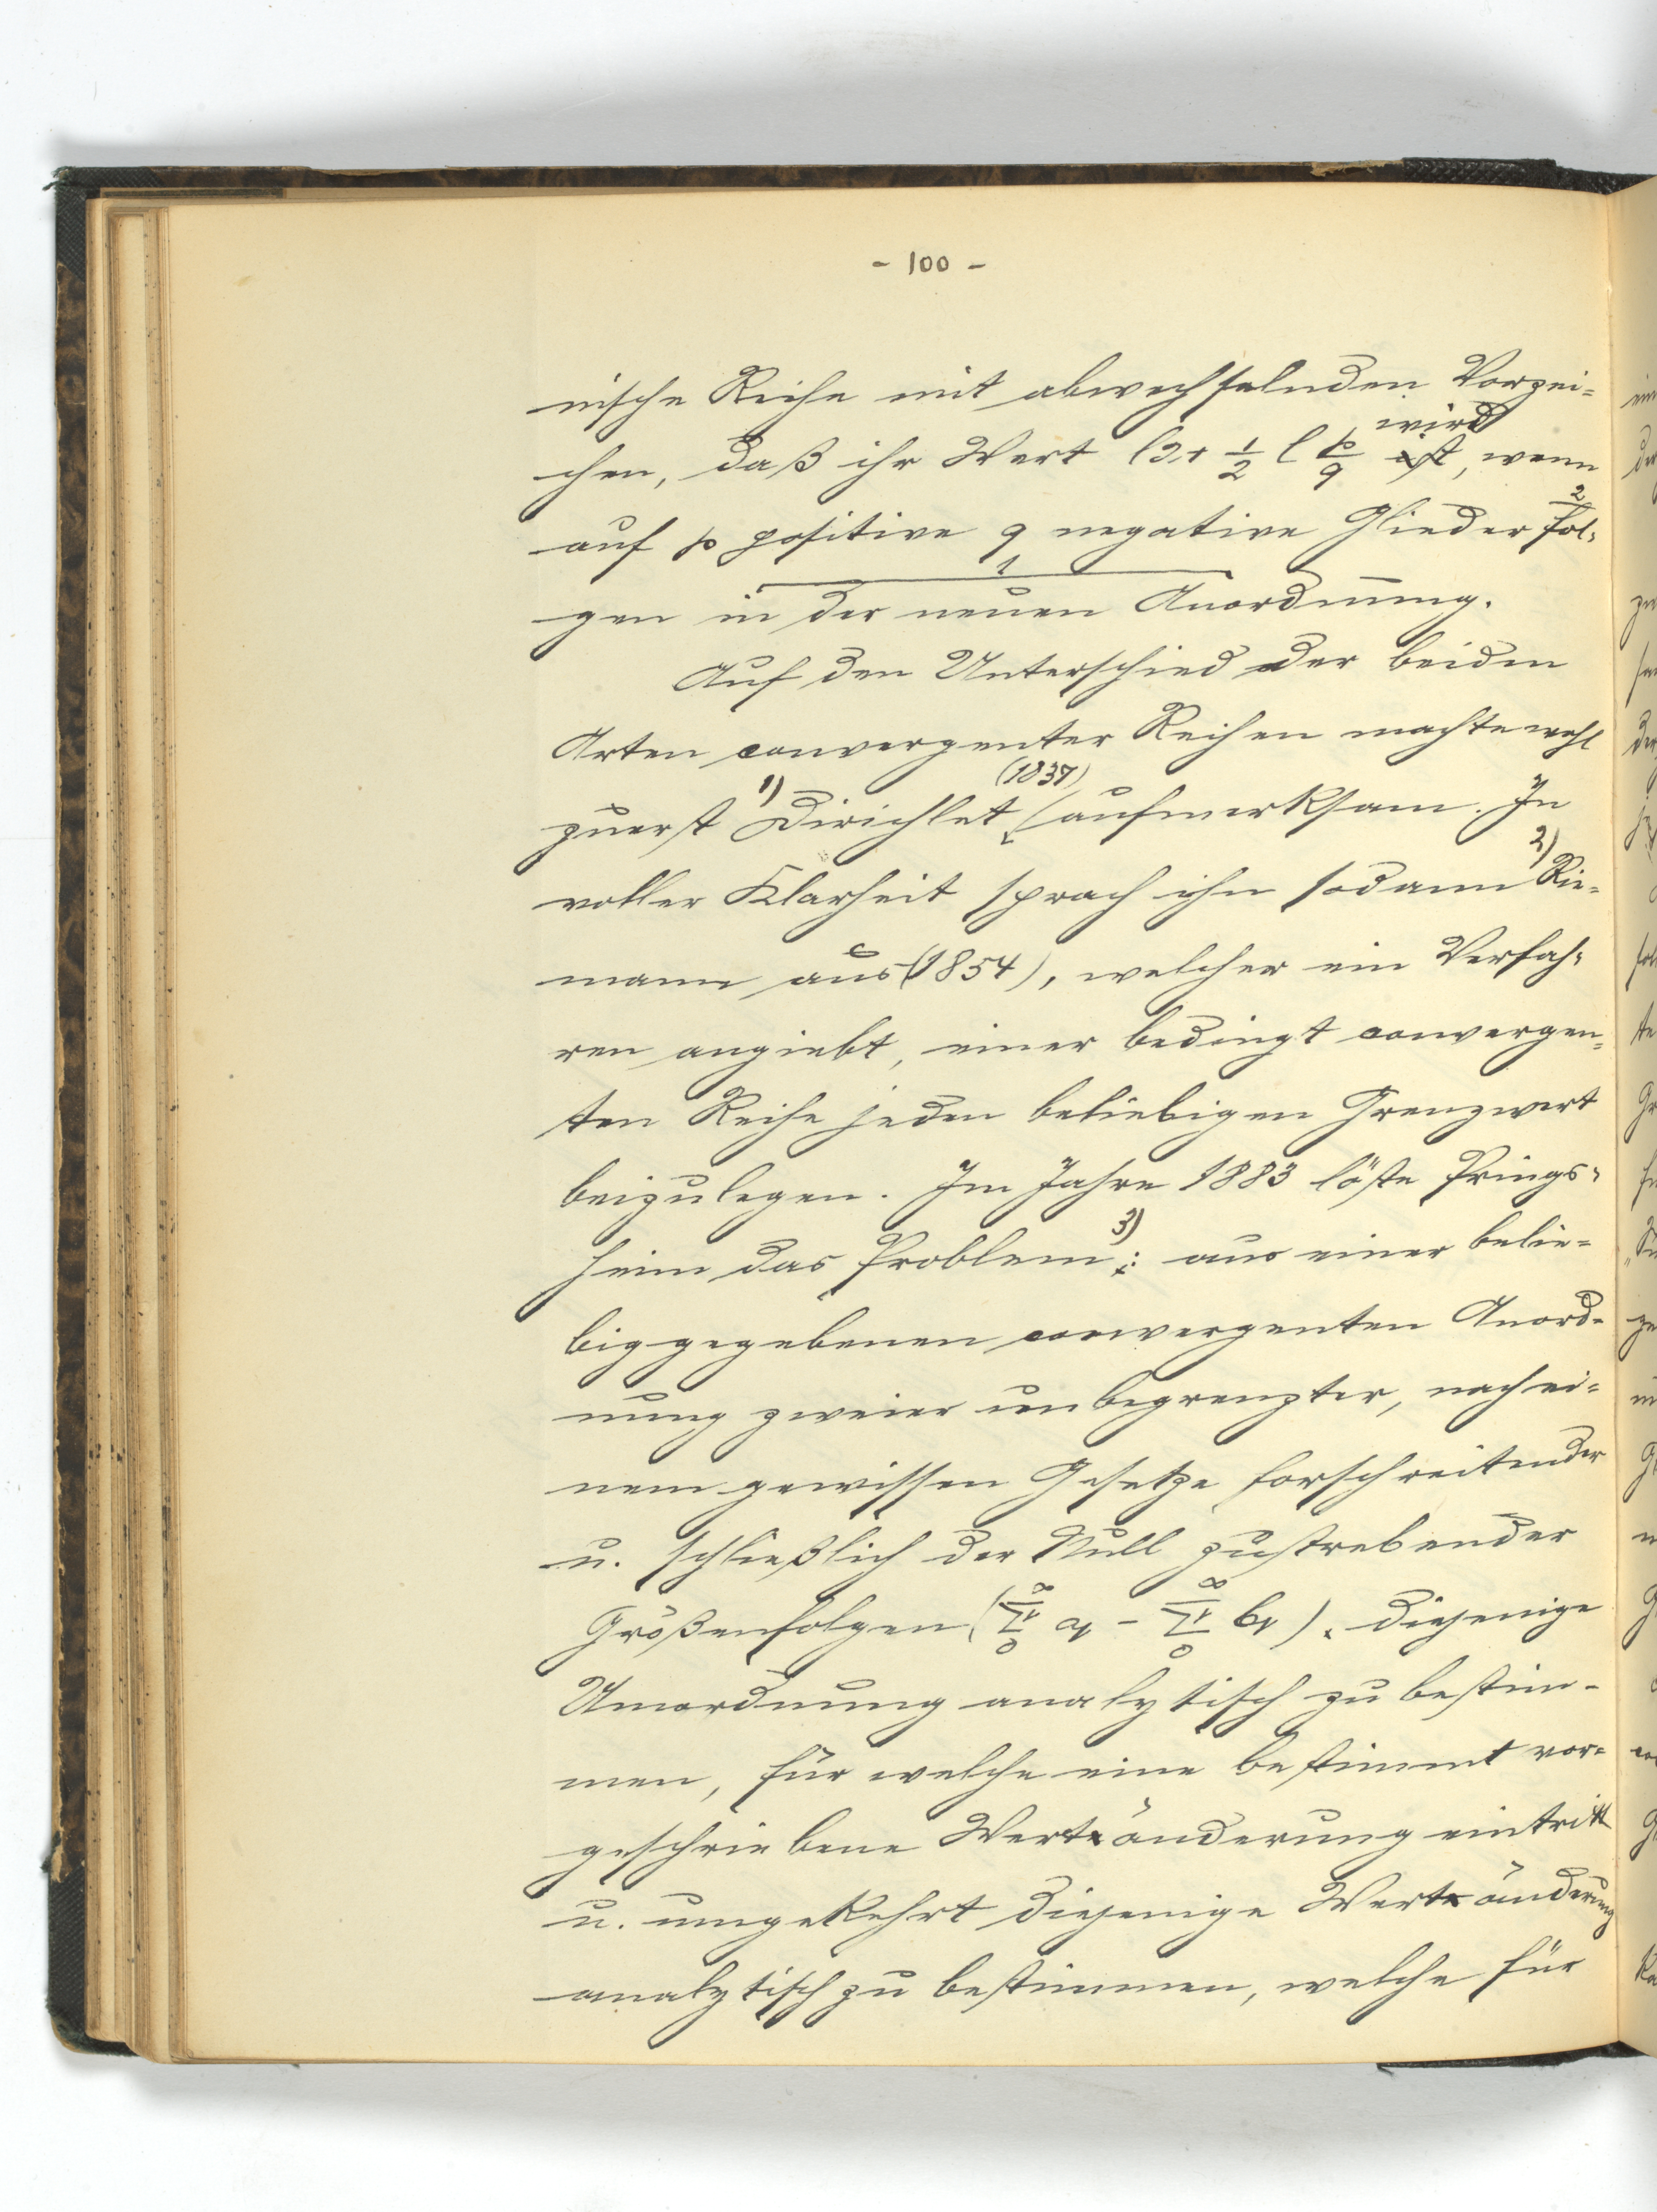 - 100 -
nische Reihe mit abwechselnden Vorzei=
wird
chen, daß ihr Wert l2 + 1/2 l p/q ist, wenn
2
auf p positive q negative Glieder fol=
1
gen in der neuen Anordnung.
Auf den Unterschied der beiden
Arten convergenter Reihen machte wohl
(1837)
zuerst 1) Dirichlet aufmerksam. In
voller Klarheit sprach ihn sodann 2) Rie=
mann aus (1854), welcher ein Verfah=
ren angiebt, einer bedingt convergen=
ten Reihe jeden beliebigen Grenzwert
beizulegen. Im Jahre 1883 löste Prings=
heim das Problem 3): aus einer belie=
big gegebenen convergenten Anord=
nung zweier unbegrenzter, nach ei=
nem gewissen Gesetze forschreitender
u. schließlich der Null zustrebender
Größenfolgen (∞Σν0 aν - ∞Σν0 bν). diejenige
Umordnung analytisch zu bestim-
men, für welche eine bestimmt vor=
geschriebene Wertänderung eintritt
u. umgekehrt diejenige Wertänderung
analytisch zu bestimmen, welche für